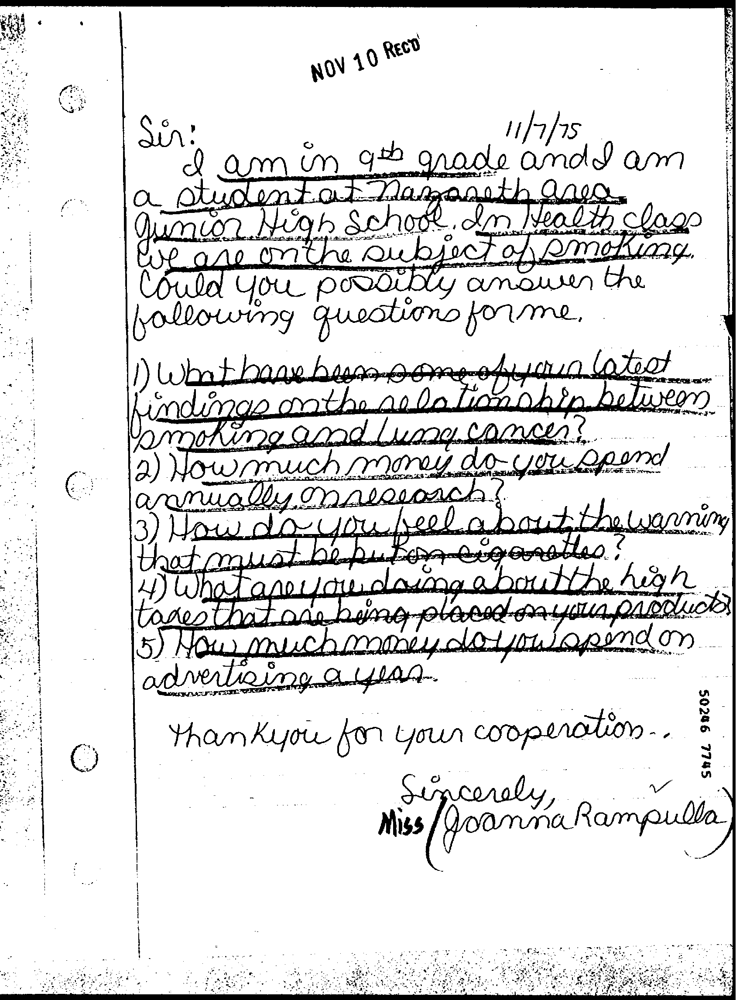 NOV 10 REC'D
11/7/75
Sir:
I am in 9th grade and I am
a student at Nazareth Area
Junior High School. In Health class
we are on the subject of smoking.
Could you possibly answer the
following questions for me.
1) What have been some of your latest
findings on the relationship between
smoking and lung cancer?
2) How much money do you spend
annually on research?
3) How do you feel about the warning
that must be put on cigarettes?
4) What are you doing about the high
taxes that are being placed on your products
5) How much money do you spend on
advertising a year.
Thankyou for your cooperation..
Sincerely,
Miss (Joanna Rampulla)
50246 7745